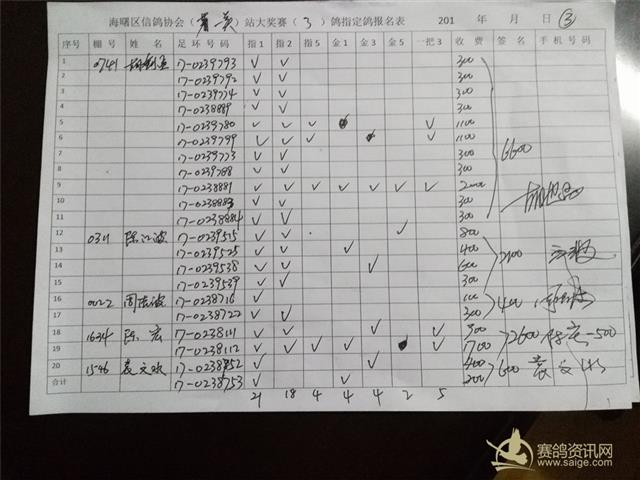 海曙区信鸽协会（ ）站大奖赛（3）鸽指定鸽报名表 201 年 月 日 ③
序号 棚号 姓名 足环号码 指1 指2 指5 金1 金3 金5 一把3 收费 签名 手机号码
1 0741 17-0239793 √ √ 300
2 17-0239792 √ √ 300
3 17-0239774 √ √ 300
4 17-0238889 √ √ 300
5 17-0239780 √ √ √ √ 1100
6 17-0239799 √ √ √ √ 1100
7 17-0239773 √ √ 300 6600
8 17-0239788 √ √ 300
9 17-0238881 √ √ √ √ √ √ √ 2000
10 17-0238883 √ √ 300
11 17-0238884 √ √ 300
12 0311 陈江波 17-0239515 √ √ √ 800
13 17-0239525 √ √ √ 400 2100
14 17-0239538 √ √ √ 600
15 17-0239539 √ √ 300
16 0022 17-0238716 √ 100 400
17 17-0238722 √ √ 300
18 1634 陈宏 17-0238111 √ √ 2600 -500
19 17-0238112 √ √ √ √ √ √ 1700
20 1546 袁文 17-0238752 √ √ 400 600 袁文
合计 17-0238753 √ 200
21 18 4 4 4 2 5
赛鸽资讯网
www.saige.com